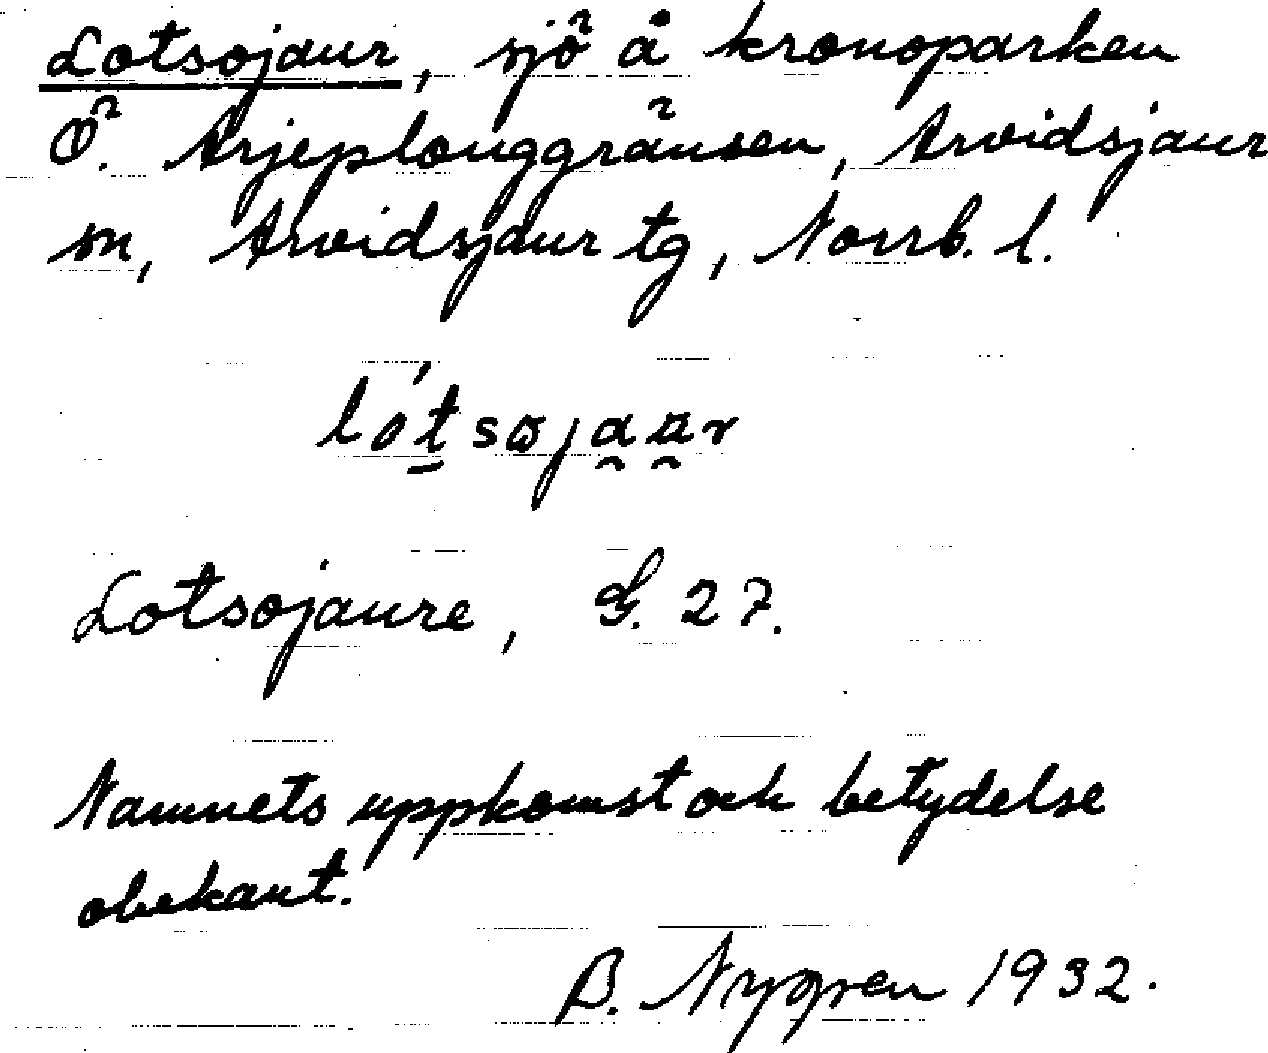 Lotsojaur, sjö å kronoparken
Ö. Arjeplouggränsen, Arvidsjaur
sn, Arvidsjaur tg, Norrb. l.
lótsojaar
Lotsojaure, G. 27.
Namnets uppkomst och betydelse
obekant.
B. Nygren 1932.